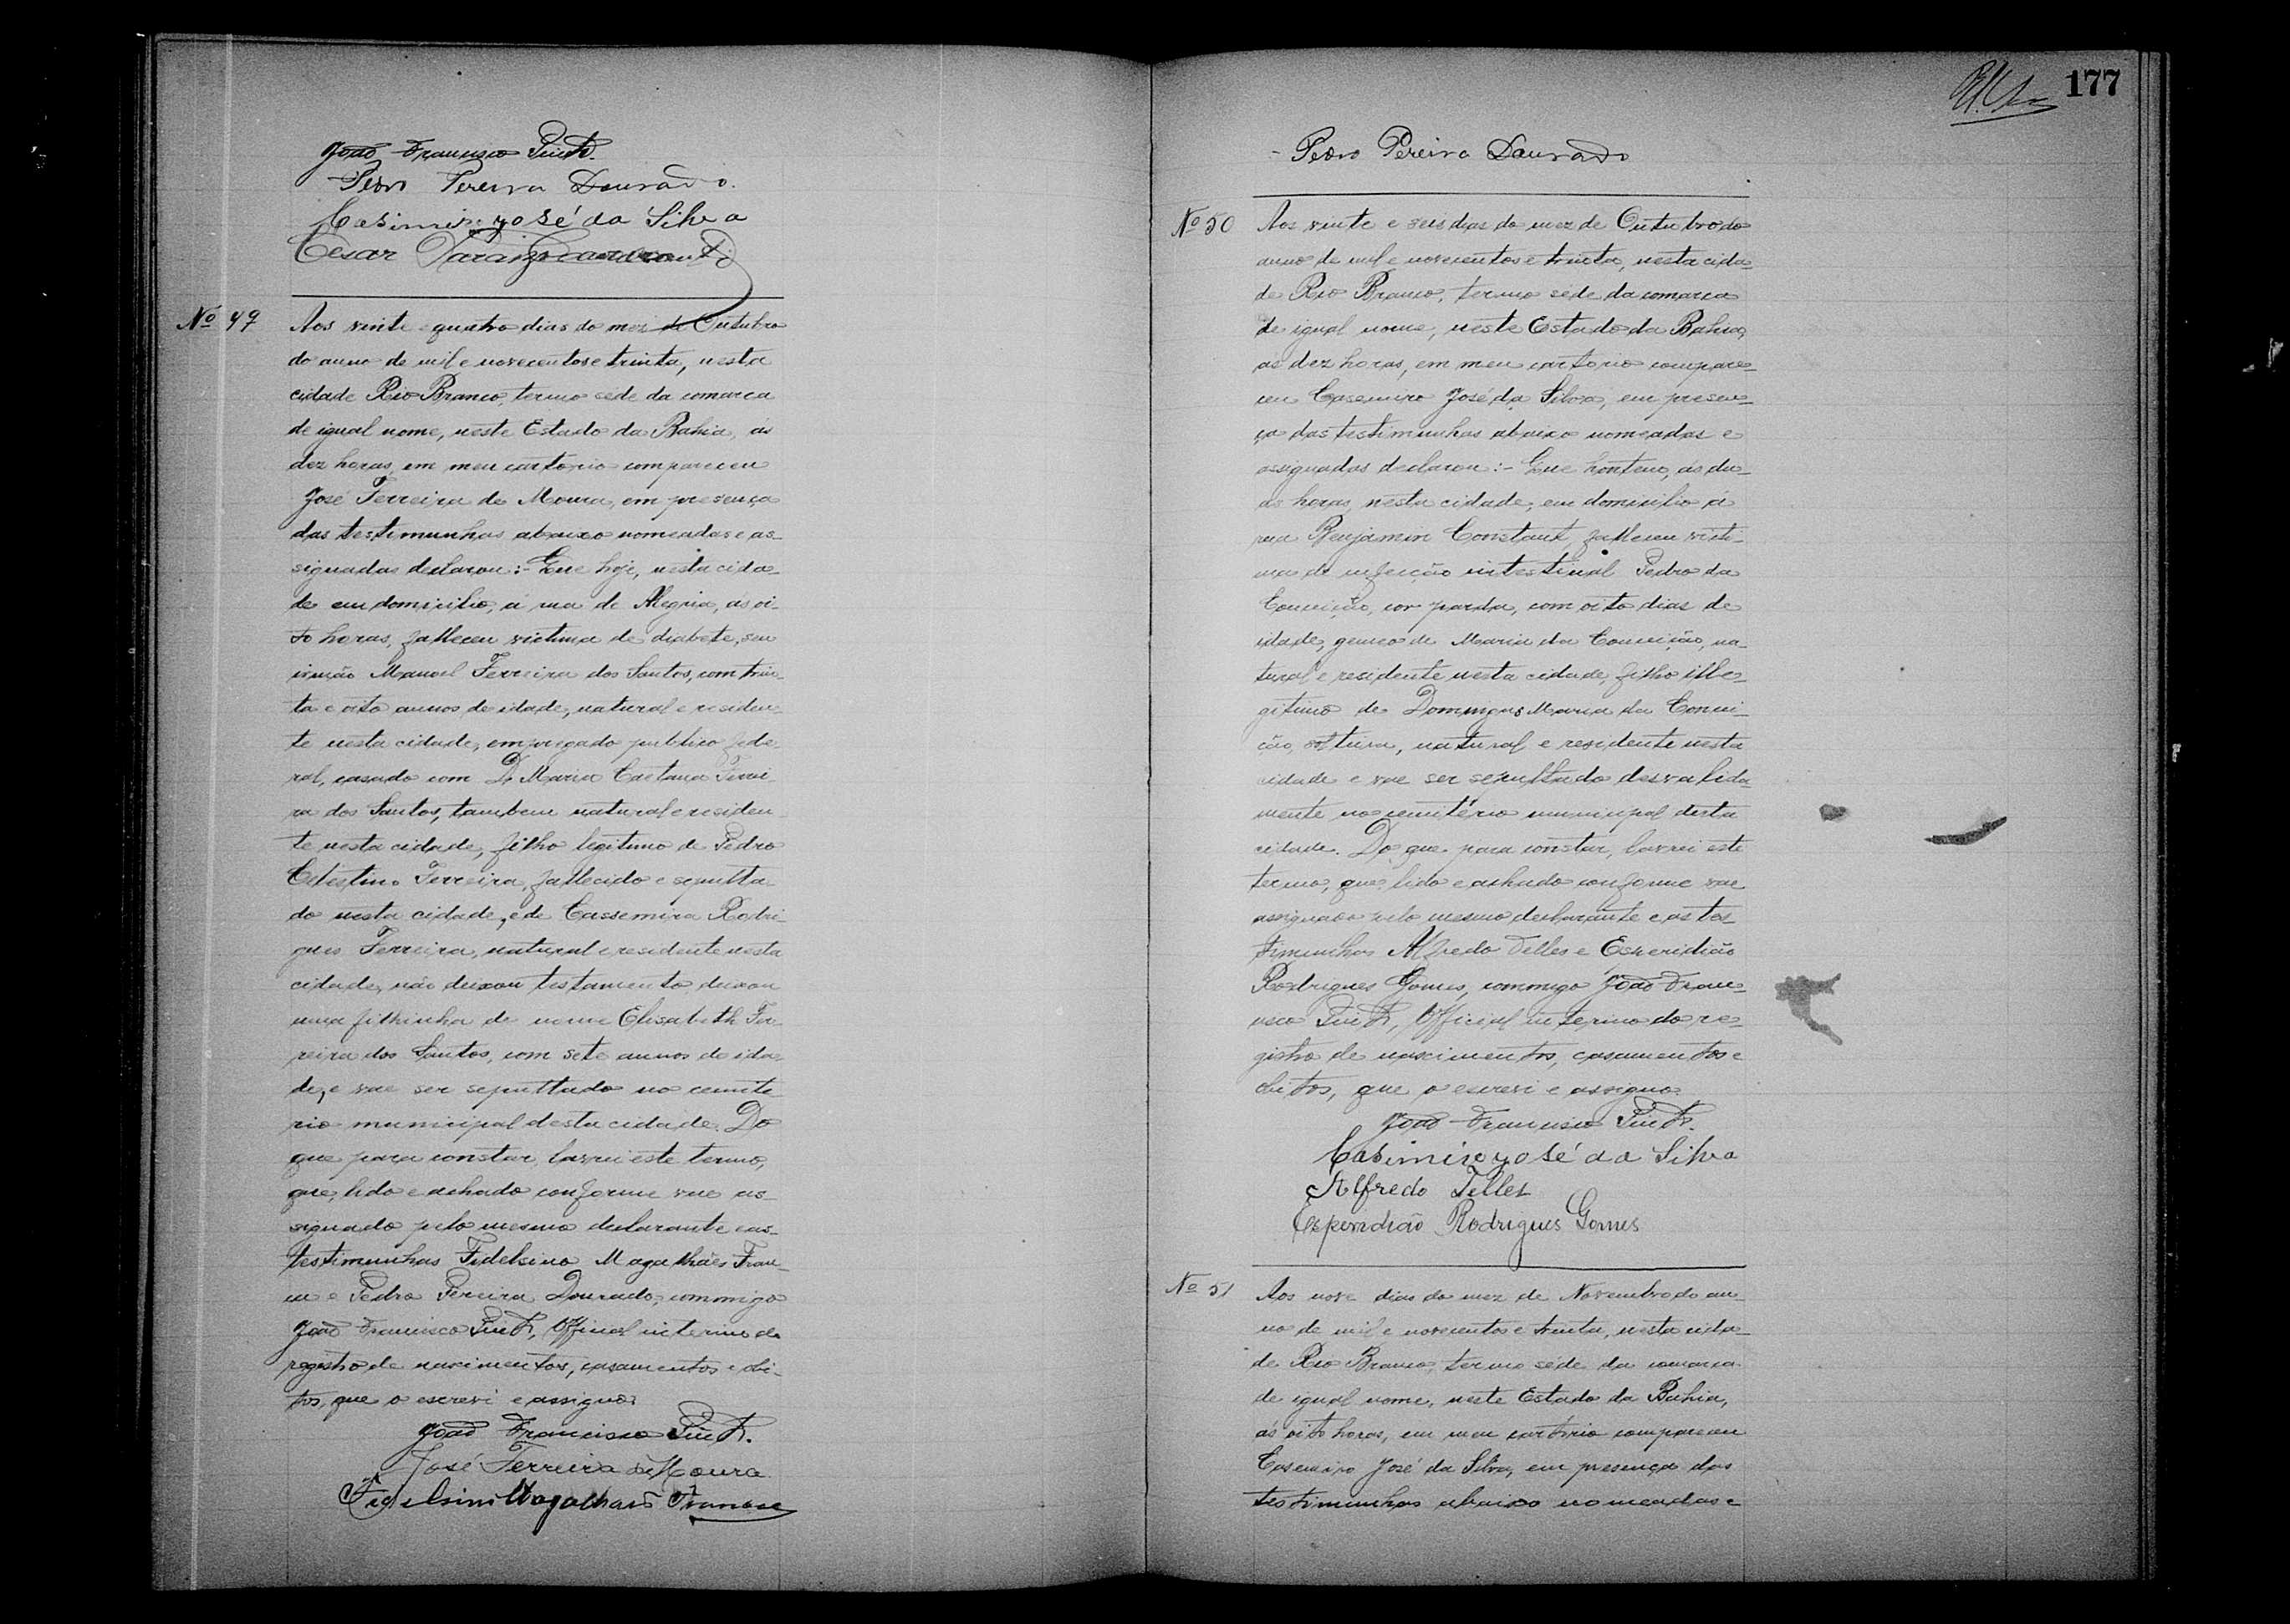 João Francisco Pinto.
Pedro Pereira Dourado.
Casimiro José da Silva
Cesar
Nº 49
Aos vinte e quatro dias do mez de Outubro
do anno de mil e novecentos e trinta, nesta
cidade Rio Branco, termo séde da comarca
de igual nome, neste Estado da Bahia, ás
dez horas, em meu cartorio compareceu
José Ferreira de Moura, em presença
das testimunhas abaixo nomeadas e as-
signadas declarou:- Que hoje, nesta cida-
de em domicilio, á rua da Alegria, ás oi-
to horas, falleceu victima de diabete, seu
irmão Manoel Ferreira dos Santos, com trin-
ta e oito annos de idade, natural e residen-
te nesta cidade, empregado publico fede-
ral, casado com D. Maria Caetana Ferrei-
ra dos Santos, tambem natural e residen-
te nesta cidade, filho legitimo de Pedro
Celestino Ferreira, fallecido e sepulta-
do nesta cidade, e de Cassemira Rodri-
gues Ferreira, natural e residente nesta
cidade, não deixou testamento, deixou
uma filhinha de nome Elisabeth Fer-
reira dos Santos, com sete annos de ida-
de, e vae ser sepultado no cemite-
rio municipal desta cidade. Do
que para constar, lavrei este termo,
que, lido e achado conforme vae as-
signado pelo mesmo declarante e as
testimunhas Fidelsino Magalhães Fran-
ca e Pedro Pereira Dourado, commigo
João Francisco Pinto, Official interino do
registro de nascimentos, casamentos e obi-
tos, que o escrevi e assigno.
João Francisco Pinto.
José Ferreira de Moura
Fidelsino Magalhães
177
Pedro Pereira Dourado
Nº 50
Aos vinte e seis dias do mez de Outubro do
anno de mil e novecentos e trinta, nesta cida-
de Rio Branco, termo séde da comarca
de igual nome, neste Estado da Bahia,
as dez horas, em meu cartorio compare-
ceu Casemiro José da Silva, em presen-
ça das testimunhas abaixo nomeadas e
assignadas declarou:- Que hontem, ás du-
as horas, nesta cidade, em domicilio á
rua Benjamin Constant, falleceu victi-
ma de infecção intestinal Pedro da
Conceição, cor parda, com oito dias de
idade, gemeo de Maria da Conceição, na-
tural e residente nesta cidade, filho ille-
gitimo de Domingas Maria da Concei-
ção, solteira, natural e residente nesta
cidade e vae ser sepultado desvalida-
mente no cemitério municipal desta
cidade. Do que para constar, lavrei este
termo, que, lido e achado conforme vae
assignado pelo mesmo declarante e as tes-
timunhas Alfredo Telles e Esperidião
Rodrigues Gomes, commigo João Fran-
cisco Pinto, Official interino do re-
gistro de nascimentos, casamentos e
obitos, que o escrevi e assigno.
João Francisco Pinto.
Casimiro José da Silva
Alfredo Telles
Esperidião Rodrigues Gomes
Nº 51
Aos nove dias do mez de Novembro do an-
no de mil e novecentos e trinta, nesta cida-
de Rio Branco, termo séde da comarca
de igual nome, neste Estado da Bahia,
ás oito horas, em meu cartorio compareceu
Casemiro José da Silva, em presença das
testimunhas abaixo nomeadas e